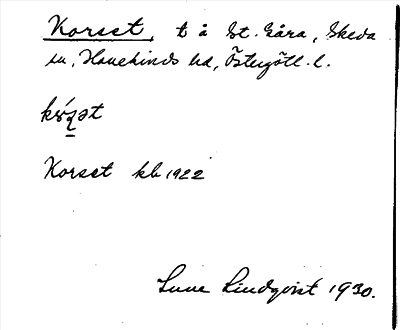 Korset, t å St. Gåra, Skeda
sn, Hanekinds hd, Östergötl. l.
Korset kb 1922
Sune Lindqvist 1930.